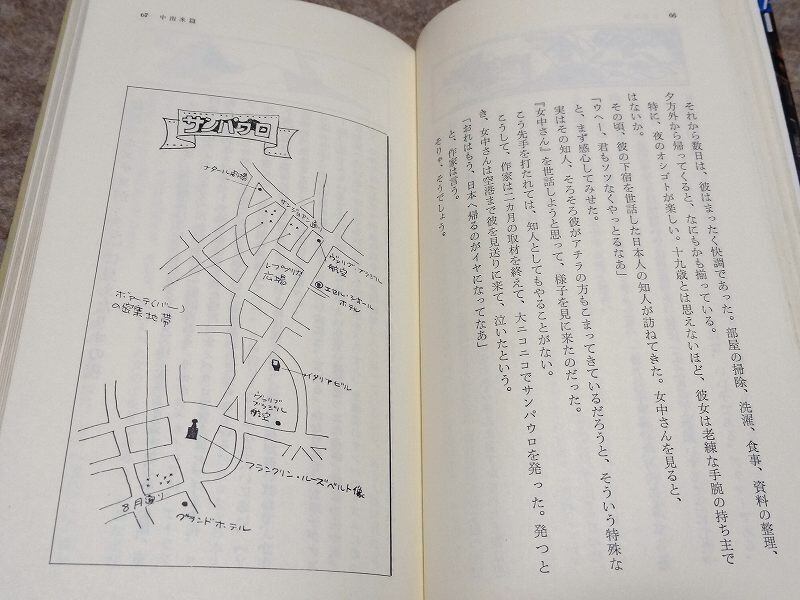 66
それから数日は、彼はまったく快調であった。部屋の掃除、洗濯、食事、資料の整理、
夕方外から帰ってくると、なにもかも揃っている。
特に、夜のオシゴトが楽しい。十九歳とは思えないほど、彼女は老練な手腕の持ち主で
はないか。
その頃、彼の下宿を世話した日本人の知人が訪ねてきた。女中さんを見ると、
「ウヘー、君もソツなくやっとるなあ」
と、まず感心してみせた。
実はその知人、そろそろ彼がアチラの方もこまってきているだろうと、そういう特殊な
『女中さん』を世話しようと思って、様子を見に来たのだった。
こう先手を打たれては、知人としてもやることがない。
こうして、作家は二カ月の取材を終えて、大ニコニコでサンパウロを発った。発つと
き、女中さんは空港まで彼を見送りに来て、泣いたという。
「おれはもう、日本へ帰るのがイヤになってなあ」
と、作家は言う。
そりゃ、そうでしょう。
67 中南米篇
サンパウロ
ナタール劇場
サンジョアン通
ヴァリグ・ブラジル
航空
レプブリカ
広場
エセル・シオール
ホテル
ボアーテ(バー)
の密集地帯
イタリアビル
ヴァリグ
ブラジル
航空
フランクリン・ルーズベルト像
8月通り
グランドホテル